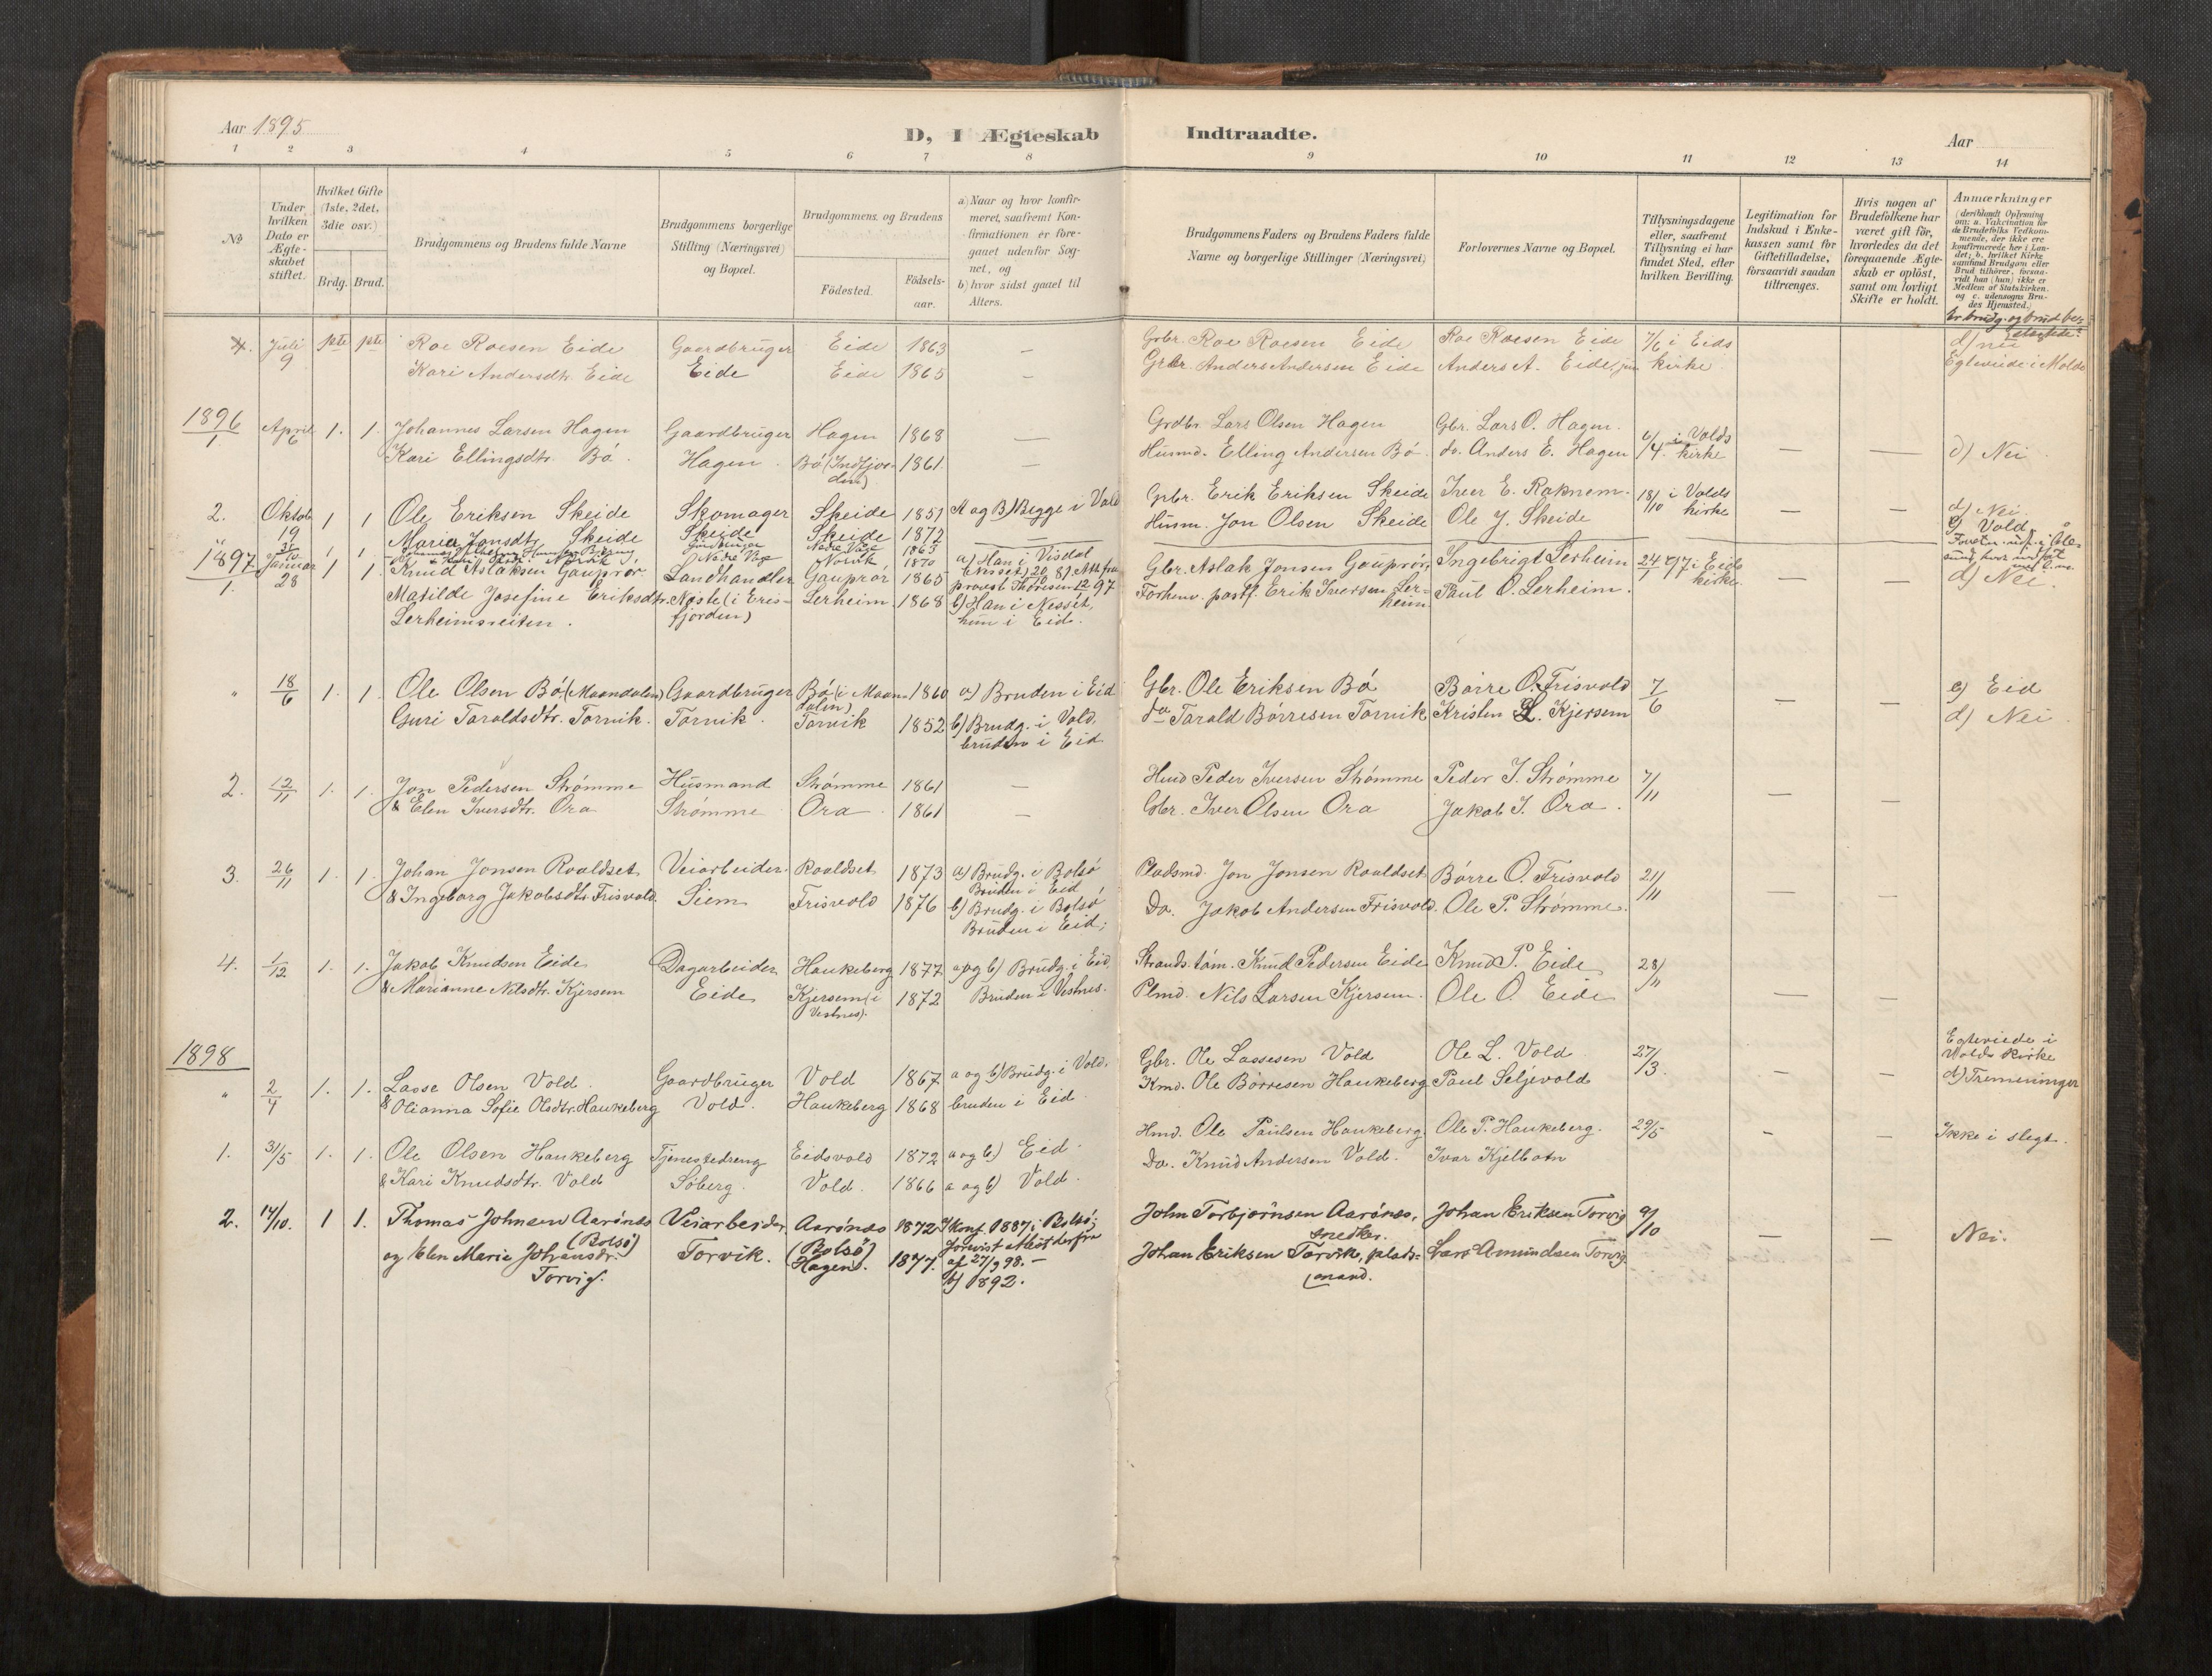 Aar 1895
D, I Ægteskab Indtraadte.
Aar
1 2 3 4 5 6 7 8 9 10 11 12 13 14
No
Under hvilken Dato er Ægteskabet stiftet.
Hvilket Gifte (1ste, 2det, 3die osv.)
Brdg. Brud.
Brudgommens og Brudens fulde Navne
Brudgommens borgerlige Stilling (Næringsvei) og Bopæl.
Brudgommens og Brudens
Fødested.
Fødselsaar.
a) Naar og hvor konfirmeret, saafremt Konfirmationen er foregaaet udenfor Sognet, og
b) hvor sidst gaaet til Alters.
Brudgommens Faders og Brudens Faders fulde Navne og borgerlige Stillinger (Næringsvei)
Forlovernes Navne og Bopæl.
Tillysningsdagene eller, saafremt Tillysning ei har fundet Sted, efter hvilken Bevilling.
Legitimation for Indskud i Enkekassen samt for Giftetilladelse, forsaavidt saadan tiltrænges.
Hvis nogen af Brudefolkene har været gift før, hvorledes da det foregaaende Ægteskab er opløst, samt om lovligt Skifte er holdt.
Anmærkninger
(deriblandt Oplysning om: a. Vakcination for de Brudefolks Vedkommende, der ikke ere konfirmerede her i Landet; b. hvilket Kirkesamfund Brudgom eller Brud tilhører, forsaavidt han (hun) ikke er Medlem af Statskirken, og c. udensogns Brudes Hjemsted.)
Juli pte pte Roe Roesen Eide Gaardbruger Eide 1863 — Grbr. Roe Roesen Eide Roe Roesen Eide 7/6 i Eids d) nei
9 Kari Andersdtr. Eide Eide Eide 1865 — Grbr. Anders Andersen Eide Anders A. Eide, jun kirke Egteviede i Molde
1896
1 April 6 1. 1. Johannes Larsen Hagen Gaardbruger Hagen 1868 — Grdbr. Lars Olsen Hagen Gbr. Lars O. Hagen. 6/4 i Volds kirke — — d) Nei
Kari Ellingsdtr. Bö. Hagen. Bö (Indfjorden) 1861 — Husmd. Elling Andersen Bö do. Anders E. Hagen
2. Oktob 19 1 1 Ole Eriksen Skeide Skomager Skeide 1851 A og B) Begge i Vold Grbr. Erik Eriksen Skeide Iver E. Raknem. 18/10 i Volds kirke d) Nei
Maria Jonsdtr. Skeide Skeide Skeide 1872 Husm. Jon Olsen Skeide Ole J. Skeide e) Vold
1897
1. Januar 28 1 1 Knud Aslaksen Gauprör Landhandler Gauprör 1865 a) Han i Visdal Gbr. Aslak Jonsen Gauprör, Ingebrigt Lerheim 24/1 i Eids kirke — — d) Nei.
Matilde Josefine Eriksdtr. Nöste (i Eris- Lerheim 1868 b) Han i Nesset, Forhenv. postf. Erik Iversen Lerheim Paul O. Lerheim.
Lerheimsreiten. fjorden) hun i Eid.
" 18/6 1. 1. Ole Olsen Bö (Maandalen) Gaardbruger Bö (i Maandalen) 1860 a) Bruden i Eid Gbr. Ole Eriksen Bö Börre O. Frisvold 7/6 — — e) Eid
Guri Taraldsdtr. Torvik. Torvik. Torvik 1852 b) Brudg. i Vold, bruden i Eid do Tarald Börresen Torvik Kristen L. Kjersem d) Nei
2. 12/11 1. 1. Jon Pedersen Strömme Husmand Strömme 1861 — Husd Peder Iversen Strömme Peder I. Strömme 7/11 — —
& Elen Iversdtr. Ora Strömme Ora 1861 — Gbr. Iver Olsen Ora Jakob I. Ora.
3. 26/11 1. 1. Johan Jonsen Roaldset Veiarbeider Roaldset 1873 a) Brudg. i Bolsö Bruden i Eid Pladsmd. Jon Jonsen Roaldset Börre O. Frisvold 21/11 — —
& Ingeborg Jakobsdtr. Frisvold. Siem Frisvold 1876 b) Brudg. i Bolsö Bruden i Eid; Do. Jakob Andersen Frisvold. Ole P. Strömme.
4. 1/12 1. 1. Jakob Knudsen Eide Dagarbeider Haukeberg 1877 a og b) Brudg. i Eid, Strands. töm. Knud Pedersen Eide Knud P. Eide 28/11 — —
& Marianne Nilsdtr. Kjersem Eide Kjersem (i Vestnes). 1872 Bruden i Vestnes. Plmd. Nils Larsen Kjersem. Ole O. Eide
1898
" 2/4 1. 1. Lasse Olsen Vold. Gaardbruger Vold 1867 a og b) Brudg. i Vold, Gbr. Ole Lassesen Vold Ole L. Vold 27/3 — — Egteviede i Volds Kirke
& Olianna Sofie Olsdtr. Haukeberg Vold. Haukeberg 1868 bruden i Eid Kmd. Ole Börresen Haukeberg Paul Seljevold d) Tremeninger
1. 31/5 1. 1. Ole Olsen Haukeberg Tjenestedreng Eidsvold 1872 a og b) Eid Hmd. Ole Paulsen Haukeberg. Ole P. Haukeberg. 29/5 — — Ikke i slegt.
& Kari Knudsdtr. Vold Söberg. Vold. 1866 a og b) Vold. Do. Knud Andersen Vold. Ivar Kjelbotn
2. 14/10. 1 1. Thomas Johnsen Aarönes (Bolsö) Veiarbeider Aarönes (Bolsö) 1872 Konf. 1887 i Bolsö; John Torbjörnsen Aarönes, snedker. Johan Eriksen Torvig 9/10 — — Nei.
og Elen Marie Johansdtr. Torvig. Torvik. Hagen. 1877. af 27/9 98. — b) 1892. Johan Eriksen Torvik, pladsmand. Lars Amundsen Torvig.